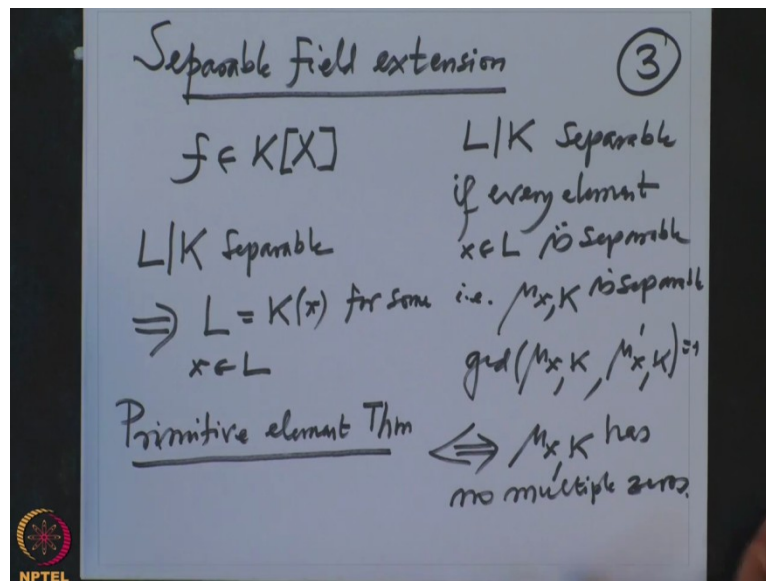 Separable field extension
3
f ∈ K[X]
L|K Separable
⇒ L = K(x) for some
x ∈ L
Primitive element Thm
L|K Separable
if every element
x ∈ L is separable
i.e. μx,K is separable
gcd(μx,K, μ'x,K)=1
⇔ μx,K has
no multiple zeros.
NPTEL